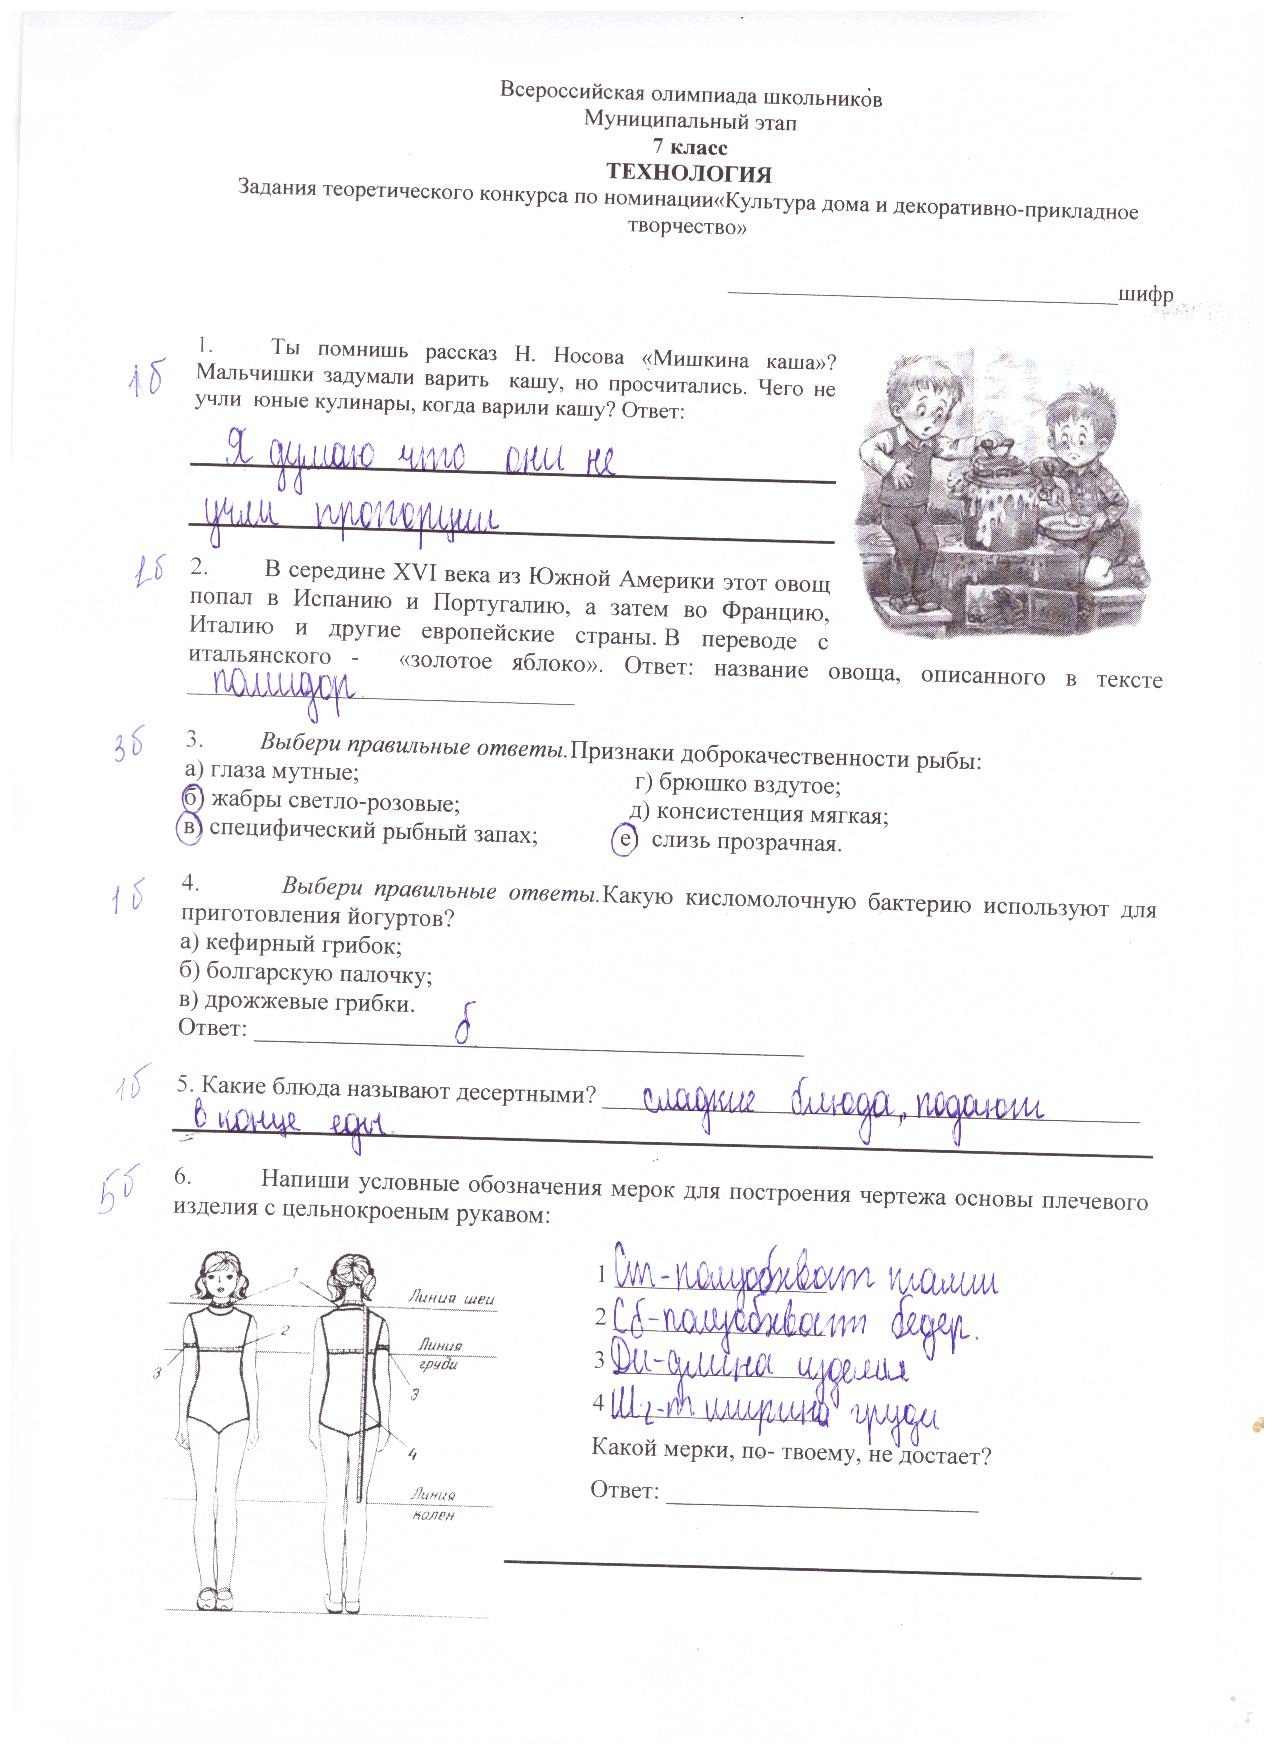 Всероссийская олимпиада школьников
Муниципальный этап
7 класс
ТЕХНОЛОГИЯ
Задания теоретического конкурса по номинации«Культура дома и декоративно-прикладное
творчество»
шифр
1б
1. Ты помнишь рассказ Н. Носова «Мишкина каша»?
Мальчишки задумали варить кашу, но просчитались. Чего не
учли юные кулинары, когда варили кашу? Ответ:
Я думаю что они не
учли пропорции
1б
2. В середине XVI века из Южной Америки этот овощ
попал в Испанию и Португалию, а затем во Францию,
Италию и другие европейские страны. В переводе с
итальянского - «золотое яблоко». Ответ: название овоща, описанного в тексте
помидор
3б
3. Выбери правильные ответы.Признаки доброкачественности рыбы:
а) глаза мутные; г) брюшко вздутое;
б) жабры светло-розовые; д) консистенция мягкая;
в) специфический рыбный запах; е) слизь прозрачная.
1б
4. Выбери правильные ответы.Какую кисломолочную бактерию используют для
приготовления йогуртов?
а) кефирный грибок;
б) болгарскую палочку;
в) дрожжевые грибки.
Ответ: б
1б
5. Какие блюда называют десертными? сладкие блюда, подают
в конце еды
5б
6. Напиши условные обозначения мерок для построения чертежа основы плечевого
изделия с цельнокроеным рукавом:
1 Ст-полуобхват талии
2 Сб-полуобхват бедер.
3 Ди-длина изделия
4 Шг-ширина груди
Какой мерки, по- твоему, не достает?
Ответ:
1
Линия шеи
2
Линия
груди
3
3
4
Линия
колен